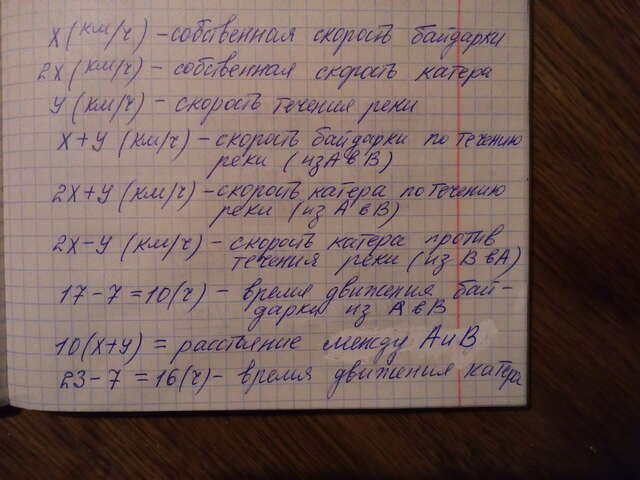 x (км/ч) – собственная скорость байдарки
2x (км/ч) – собственная скорость катера
y (км/ч) – скорость течения реки
x+y (км/ч) – скорость байдарки по течению
реки (из A в B)
2x+y (км/ч) – скорость катера по течению
реки (из A в B)
2x–y (км/ч) – скорость катера против
течения реки (из B в A)
17–7=10(ч) – время движения бай-
дарки из A в B
10(x+y) = расстояние между A и B
23–7=16(ч) – время движения катера